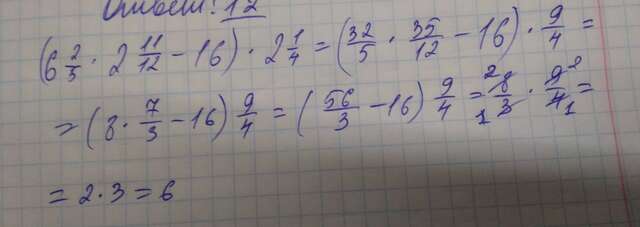 Ответ: 12
(6 2/5 · 2 11/12 − 16) · 2 1/4 = (32/5 · 35/12 − 16) · 9/4 =
= (8 · 7/3 − 16) 9/4 = (56/3 − 16) 9/4 = 8/3 · 9/4 =
= 2 · 3 = 6